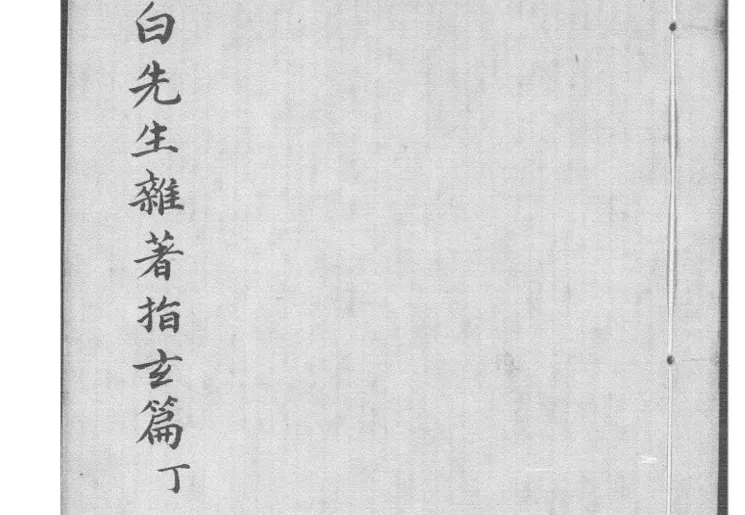 白先生雜著指玄篇丁